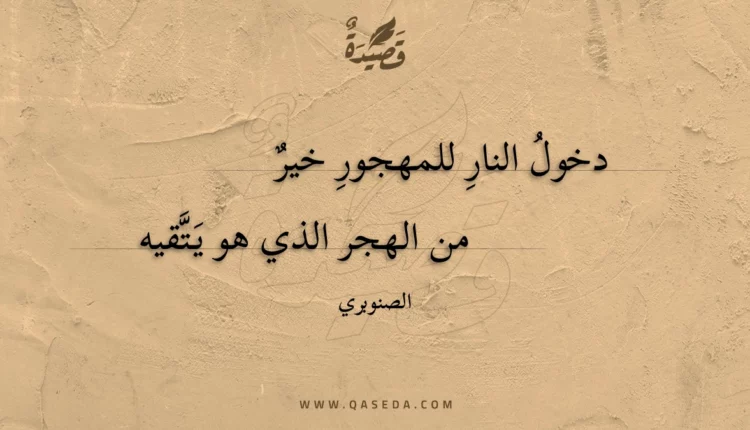 قَصِيدَةٌ
دخولُ النارِ للمهجورِ خيرٌ
من الهجر الذي هو يَتَّقيه
الصنوبري
WWW.QASEDA.COM